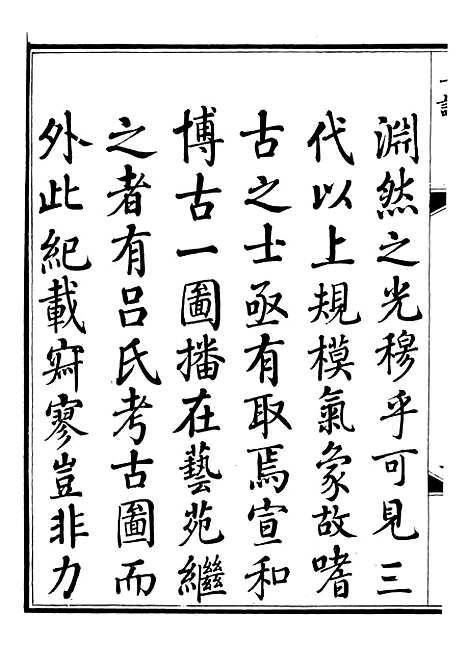 淵然之光穆乎可見三
代以上規模氣象故嗜
古之士亟有取焉宣和
博古一圖播在藝苑繼
之者有呂氏考古圖而
外此紀載寂寥豈非力